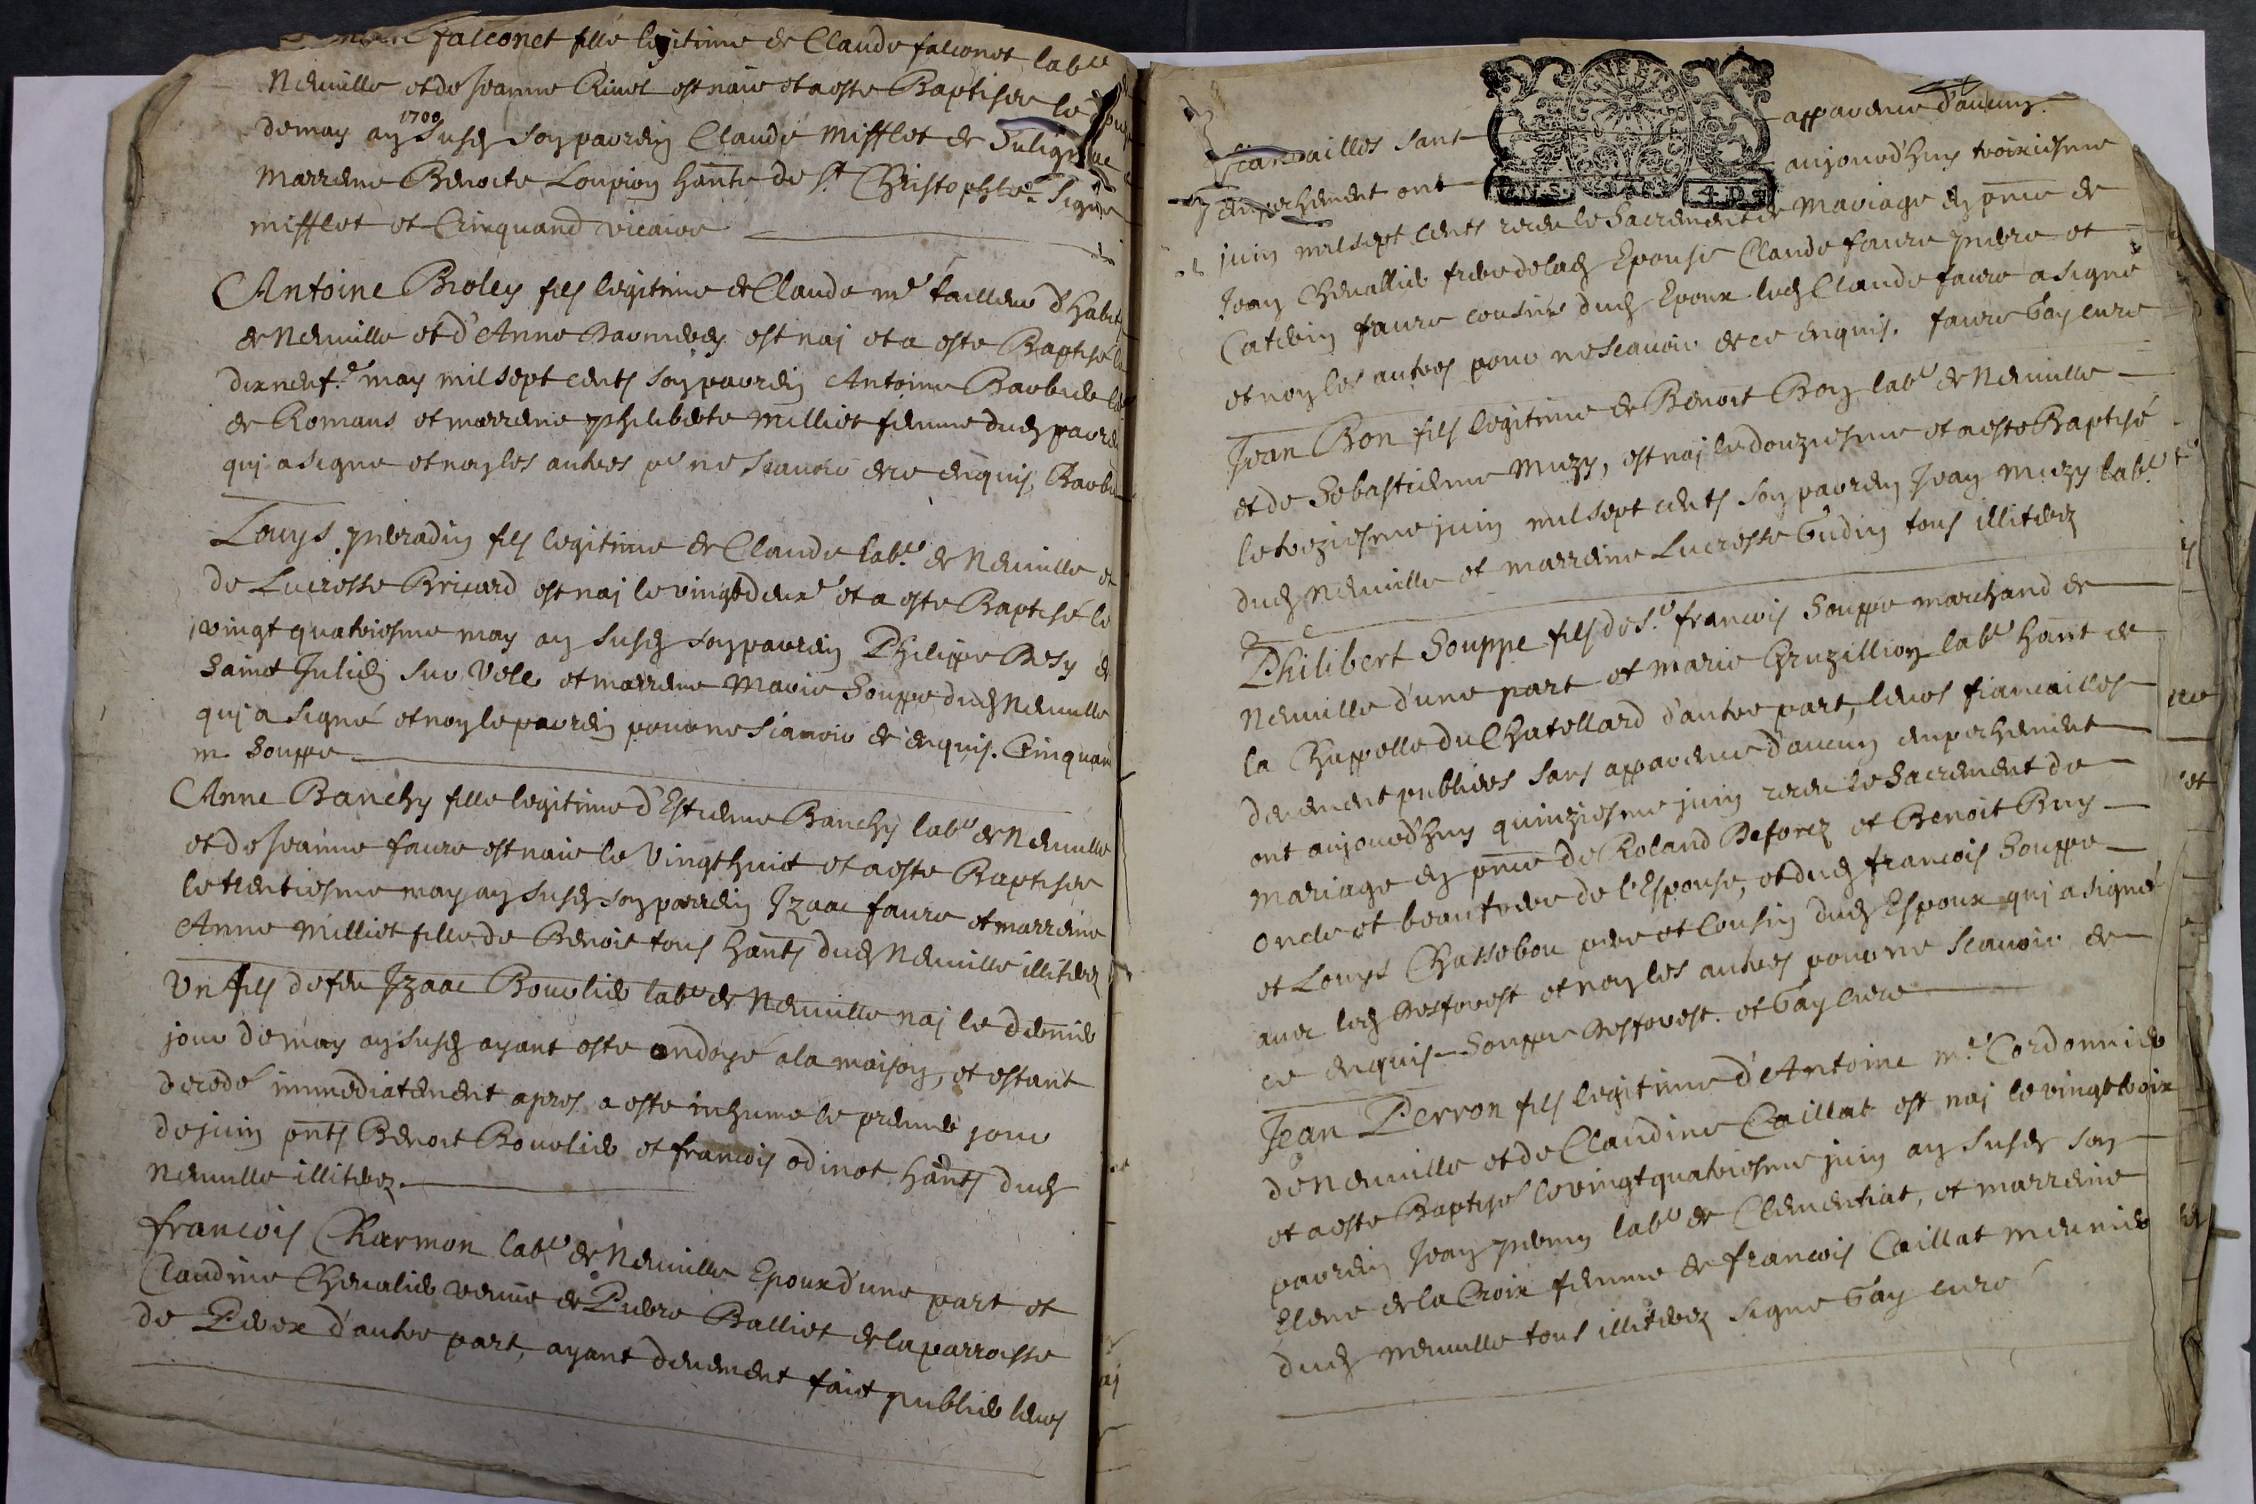 falconet fille legitime de Claude falconet lab.r
Neuville et de Jeanne Rivet est naie et a esté Baptisée le
1700
de may an susd son parrein Claude Mifflet de Sulignac
marreine Benoite Loupion hante de St Christophle. Signé
mifflet et Cinquand vicaire
Antoine Broley fils legitime de Claude me tailleur d'habit
de Neuville et d'Anne est nai et a esté Baptisé le
dixneufe may mil sept cents son parrein Antoine Barbier
de Romans et marreine philiberte Milliet femme dud parrein
qui a signé et non les autres pr ne scavoir de ce enquis,
Louys peradin fils legitime de Claude labr de Neuville et
de Lucresse Bricard est nai le vingtdeuxe et a esté Baptisé le
vingt quatriesme may an susd son parrein Philippe Besy de
Saint Julien sur Vele et marreine Marie Souppe dud Neuville
qui a signé et non le parrein pour ne scavoir de enquis. Cinquand
m Souppe
Anne Banchy fille legitime d'Estienne Banchy labr de Neuville
et de Jeanne faure est naie le Vingthuit et a esté Baptisée
le trentiesme may an susd son parrein Izaac faure et marreine
Anne Milliet fille de Benoit tous hants dud Neuville illiterez
Un fils de feu Izaac Bouvlier labr de Neuville nai le dernier
jour de may an susd ayant esté ondoyé a la maison, et estant
decedé immediatement apres a esté inhumé le premier jour
de juin pnts Benoit Bouvlier et francois odinot hants dud
Neuville illiterez.
francois Charmon labr de Neuville Epoux d'une part et
Claudine Chevalier veuve de Pierre Balliet de la parroisse
de Perex d'autre part, ayant deuement fait publier leurs
fiancailles sans apparence d'aucun
empechement ont aujourd'huy troiziesme
juin mil sept cents receu le Sacrement de Mariage en pnce de
Jean Chevallier frere de lad Epouse Claude faure pierre et
Caterin faure cousins dud Epoux led Claude faure a signé
et non les autres pour ne scavoir de ce enquis. faure Gay curé
Jean Bon fils legitime de Benoit Bon labr de Neuville
et de Sebastienne Muzy, est nai le douziesme et a esté Baptisé
le treziesme juin mil sept cents son parrein Jean Muzy labr
dud Neuville et marreine Lucresse Gudin tous illiterez
Philibert Souppe fils de Sr francois Souppe marchand de
Neuville d'une part et marie Gruzillion labr hant de
la Chappelle du Chatellard d'autre part, leurs fiancailles
deuement publiées sans apparence d'aucun empechement
ont aujourd'huy quinziesme juin receu le Sacrement de
mariage en pnce de Roland Deforez et Benoit Buy
oncle et beaufrere de l'Espouse, et dud francois Souppe
et Louys Chassebou pere et Cousin dud Espoux qui a signé
avec led Desforest et non les autres pour ne scavoir de
ce enquis Souppe Desforest. et Gay curé
Jean Perron fils legitime d'Antoine me Cordonnier
de Neuville et de Claudine Caillat est nai le vingttroix
et a esté Baptisé le vingtquatriesme juin an susd son
parrein Jean labr de Clementiat, et marreine
Elene de la Croix femme de francois Caillat meunier
dud neuville tous illiterez signe Gay curé